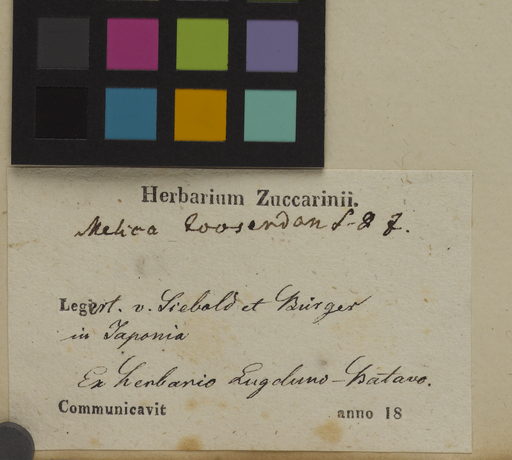 Herbarium Zuccarinii.
Melica tooserdon S. & Z.
Legert. v. Siebold et Bürger
in Japonia
Ex herbario Lugduno-Batavo.
Communicavit anno 18